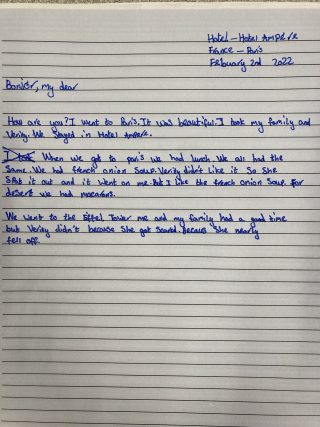 Hotel - Hotel Ampere
France - Paris
February 2nd 2022
Bonjor, my dear
How are you? I went to Paris. It was beautiful. I took my family and
Verity. We stayed in Hotel Ampere.
When we got to paris we had lunch. We all had the
Same. We had french onion Soup. Verity didn't like it so She
Spat it out and it went on me. But I like the french onion Soup. for
desert we had macarons.
We went to the Eiffel Tower me and my family had a good time
but Verity didn't because She got Scared. because She nearly
fell off.